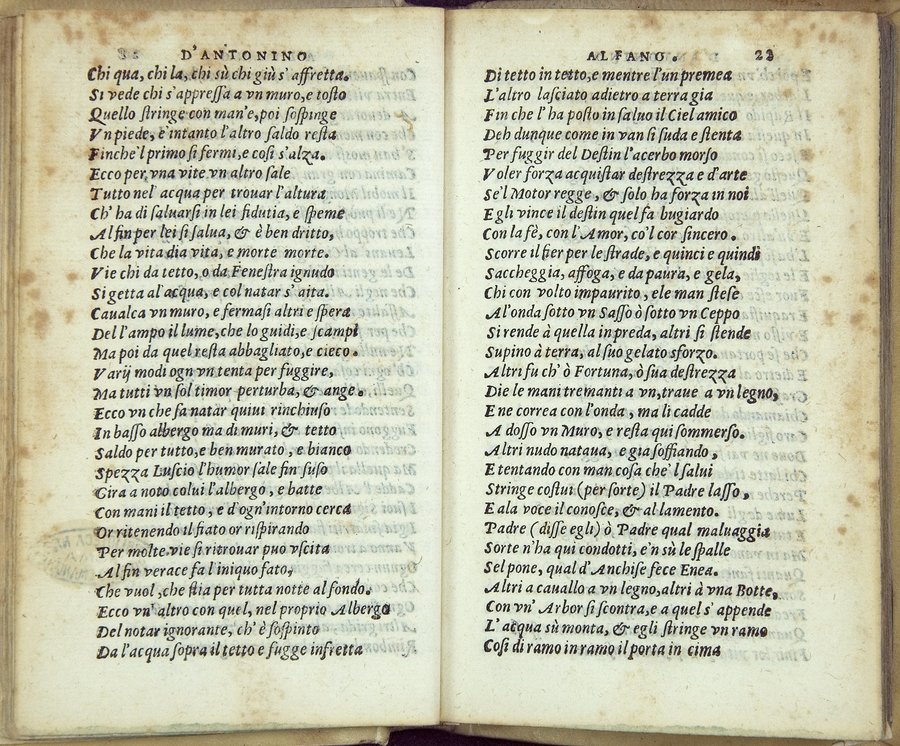 D'ANTONINO
Chi quà, chi la, chi sù chi giù s'affretta.
Si vede chi s'appressa a vn muro, e tosto
Quello stringe con man'e, poi sospinge
Vn piede, è intanto l'altro saldo resta
Finche'l primo si fermi, e così s'alza.
Ecco per, vna vite vn altro sale
Tutto nel' acqua per trouar l'altura
Ch' ha di saluarsi in lei fidutia, e speme
Al fin per lei si salua, & è ben dritto,
Che la vita dia vita, e morte morte.
Vie chi da tetto, o da Fenestra ignudo
Si getta al'acqua, e col natar s'aita.
Caualca vn muro, e fermasi altri e spera
Del l'ampo il lume, che lo guidi, e scampi
Ma poi da quel resta abbagliato, e cieco.
Varij modi ogn vn tenta per fuggire,
Ma tutti vn sol timor perturba, & ange.
Ecco vn che sa natar quiui rinchiuso
In basso albergo ma di muri, & tetto
Saldo per tutto, e ben murato, e bianco
Spezza Luscio l'humor sale fin suso
Gira a noto colui l'albergo, e batte
Con mani il tetto, e d'ogn'intorno cerca
Or ritenendo il fiato or rispirando
Per molte vie si ritrouar puo vscita
Al fin verace fa l'iniquo fato,
Che vuol, che stia per tutta notte al fondo.
Ecco vn'altro con quel, nel proprio Albergo
Del notar ignorante, ch'è sospinto
Da l'acqua sopra il tetto e fugge infretta
ALFANO. 22
Di tetto in tetto, e mentre l'un premea
L'altro lasciato adietro a terra gia
Fin che l'ha posto in saluo il Ciel amico
Deh dunque come in van si suda e stenta
Per fuggir del Destin l'acerbo morso
Voler forza acquistar destrezza e d'arte
Se'l Motor regge, & solo ha forza in noi
Egli vince il destin quel fa bugiardo
Con la fè, con l'Amor, co'l cor sincero.
Scorre il fier per le strade, e quinci e quindi
Saccheggia, affoga, e da paura, e gela,
Chi con volto impaurito, ele man stese
Al'onda sotto vn Sasso ò sotto vn Ceppo
Si rende à quella in preda, altri si stende
Supino à terra, al suo gelato sforzo.
Altri fu ch' ò Fortuna, ò sua destrezza
Die le mani tremanti a vn, traue a vn legno,
E ne correa con l'onda, ma li cadde
A dosso vn Muro, e resta qui sommerso.
Altri nudo nataua, e gia soffiando,
E tentando con man cosa che'l salui
Stringe costui (per sorte) il Padre lasso,
E ala voce il conosce, & al lamento.
Padre (disse egli) ò Padre qual maluaggia
Sorte n'ha qui condotti, e'n sù le spalle
Sel pone, qual d'Anchise fece Enea.
Altri a cauallo a vn legno, altri à vna Botte,
Con vn' Arbor si scontra, e a quel s'appende
L'acqua sù monta, & egli stringe vn ramo
Cosi di ramo in ramo il porta in cima